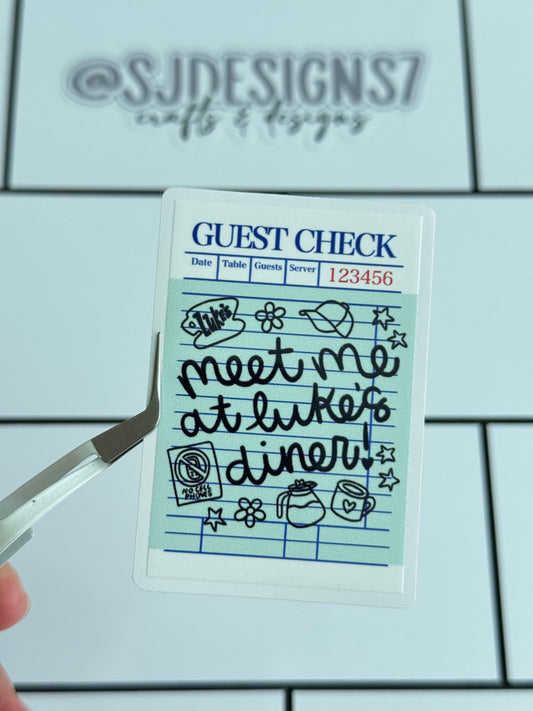 @SJDESIGNS7
crafts & designs
GUEST CHECK
Date Table Guests Server 123456
Luke's
meet me
at luke's
diner!
NO CELL
PHONES